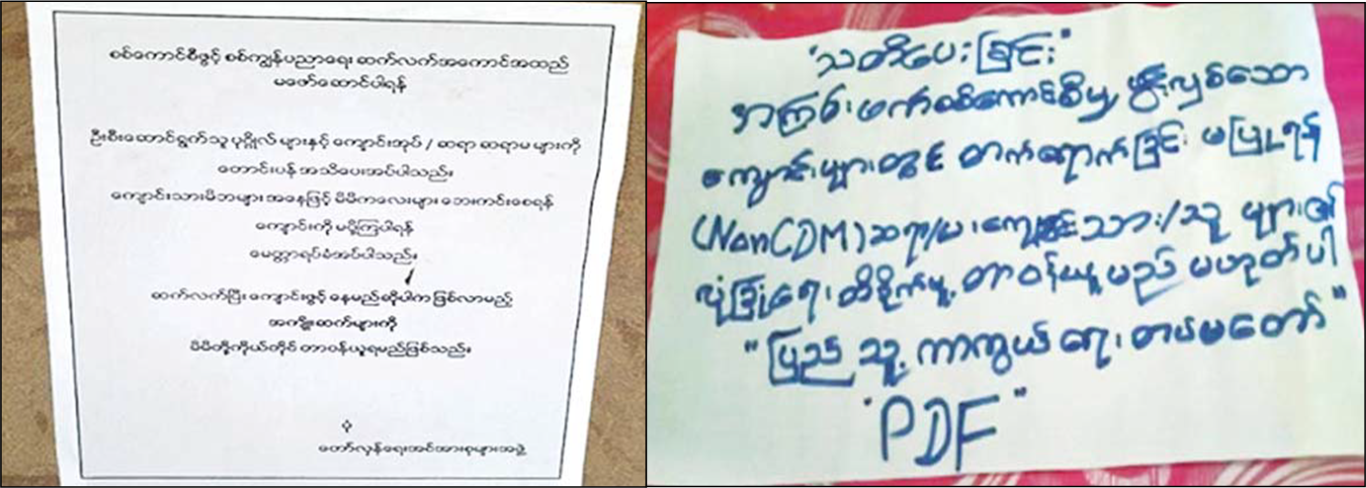 စစ်ကောင်စီဖွင့် စစ်ကျွန်ပညာရေး ဆက်လက်အကောင်အထည်
မဖော်ဆောင်ပါရန်
ဦးစီးဆောင်ရွက်သူ ပုဂ္ဂိုလ် များနှင့် ကျောင်းအုပ် / ဆရာ ဆရာမ များကို
တောင်းပန် အသိပေးအပ်ပါသည်။
ကျောင်းသားမိဘများ အနေဖြင့် မိမိကလေးများ ဘေးကင်းစေရန်
ကျောင်းကို မပို့ကြပါရန်
မေတ္တာရပ်ခံအပ်ပါသည်။
ဆက်လက်ပြီး ကျောင်းဖွင့် နေမည်ဆိုပါက ဖြစ်လာမည့်
အကျိုးဆက်များကို
မိမိတို့ကိုယ်တိုင် တာဝန်ယူရမည်ဖြစ်သည်။
ပုံ
တော်လှန်ရေးအင်အားစုများအဖွဲ့
"သတိပေးခြင်း"
အကြမ်းဖက်စစ်ကောင်စီမှ ဖွင့်လှစ်သော
ကျောင်းများတွင် တက်ရောက်ခြင်း မပြုရန်
(NonCDM) ဆရာ/မ၊ ကျောင်းသား/သူ များ၏
လုံခြုံရေး ထိခိုက်မှု တာဝန်ယူမည် မဟုတ်ပါ
"ပြည်သူ့ ကာကွယ်ရေး တပ်မတော်"
"PDF"